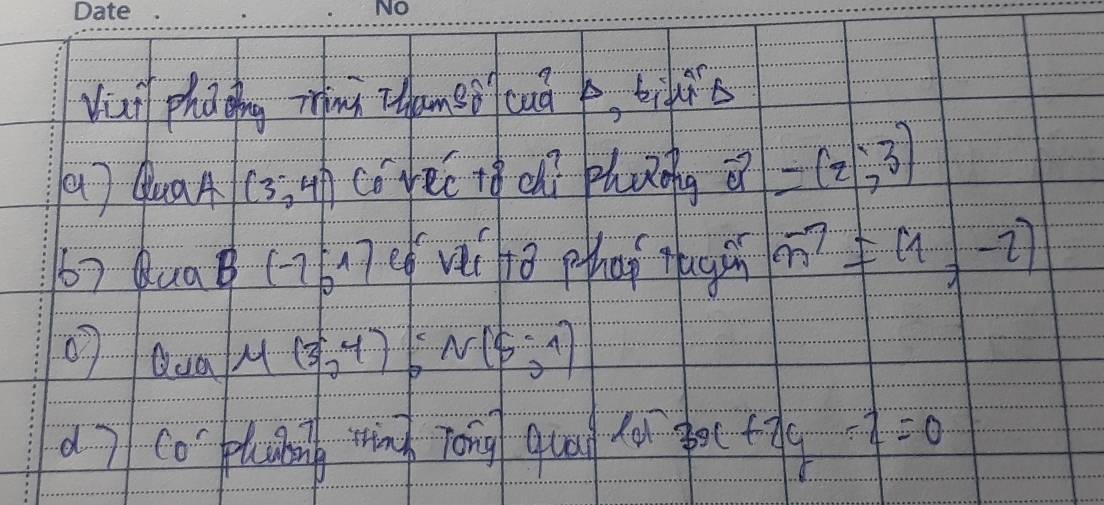 Date . . . No
Viết phương trình tham số của Δ, biết Δ
a) Qua A (3;4) có véc tơ chỉ phương a⃗ = (2;3)
b) Qua B (-2;1) có véc tơ pháp tuyến n⃗ = (1,-2)
c) Qua M (3;4); N(5;1)
d) Có phương trình Tổng quát là 3x + 2y - 2 = 0